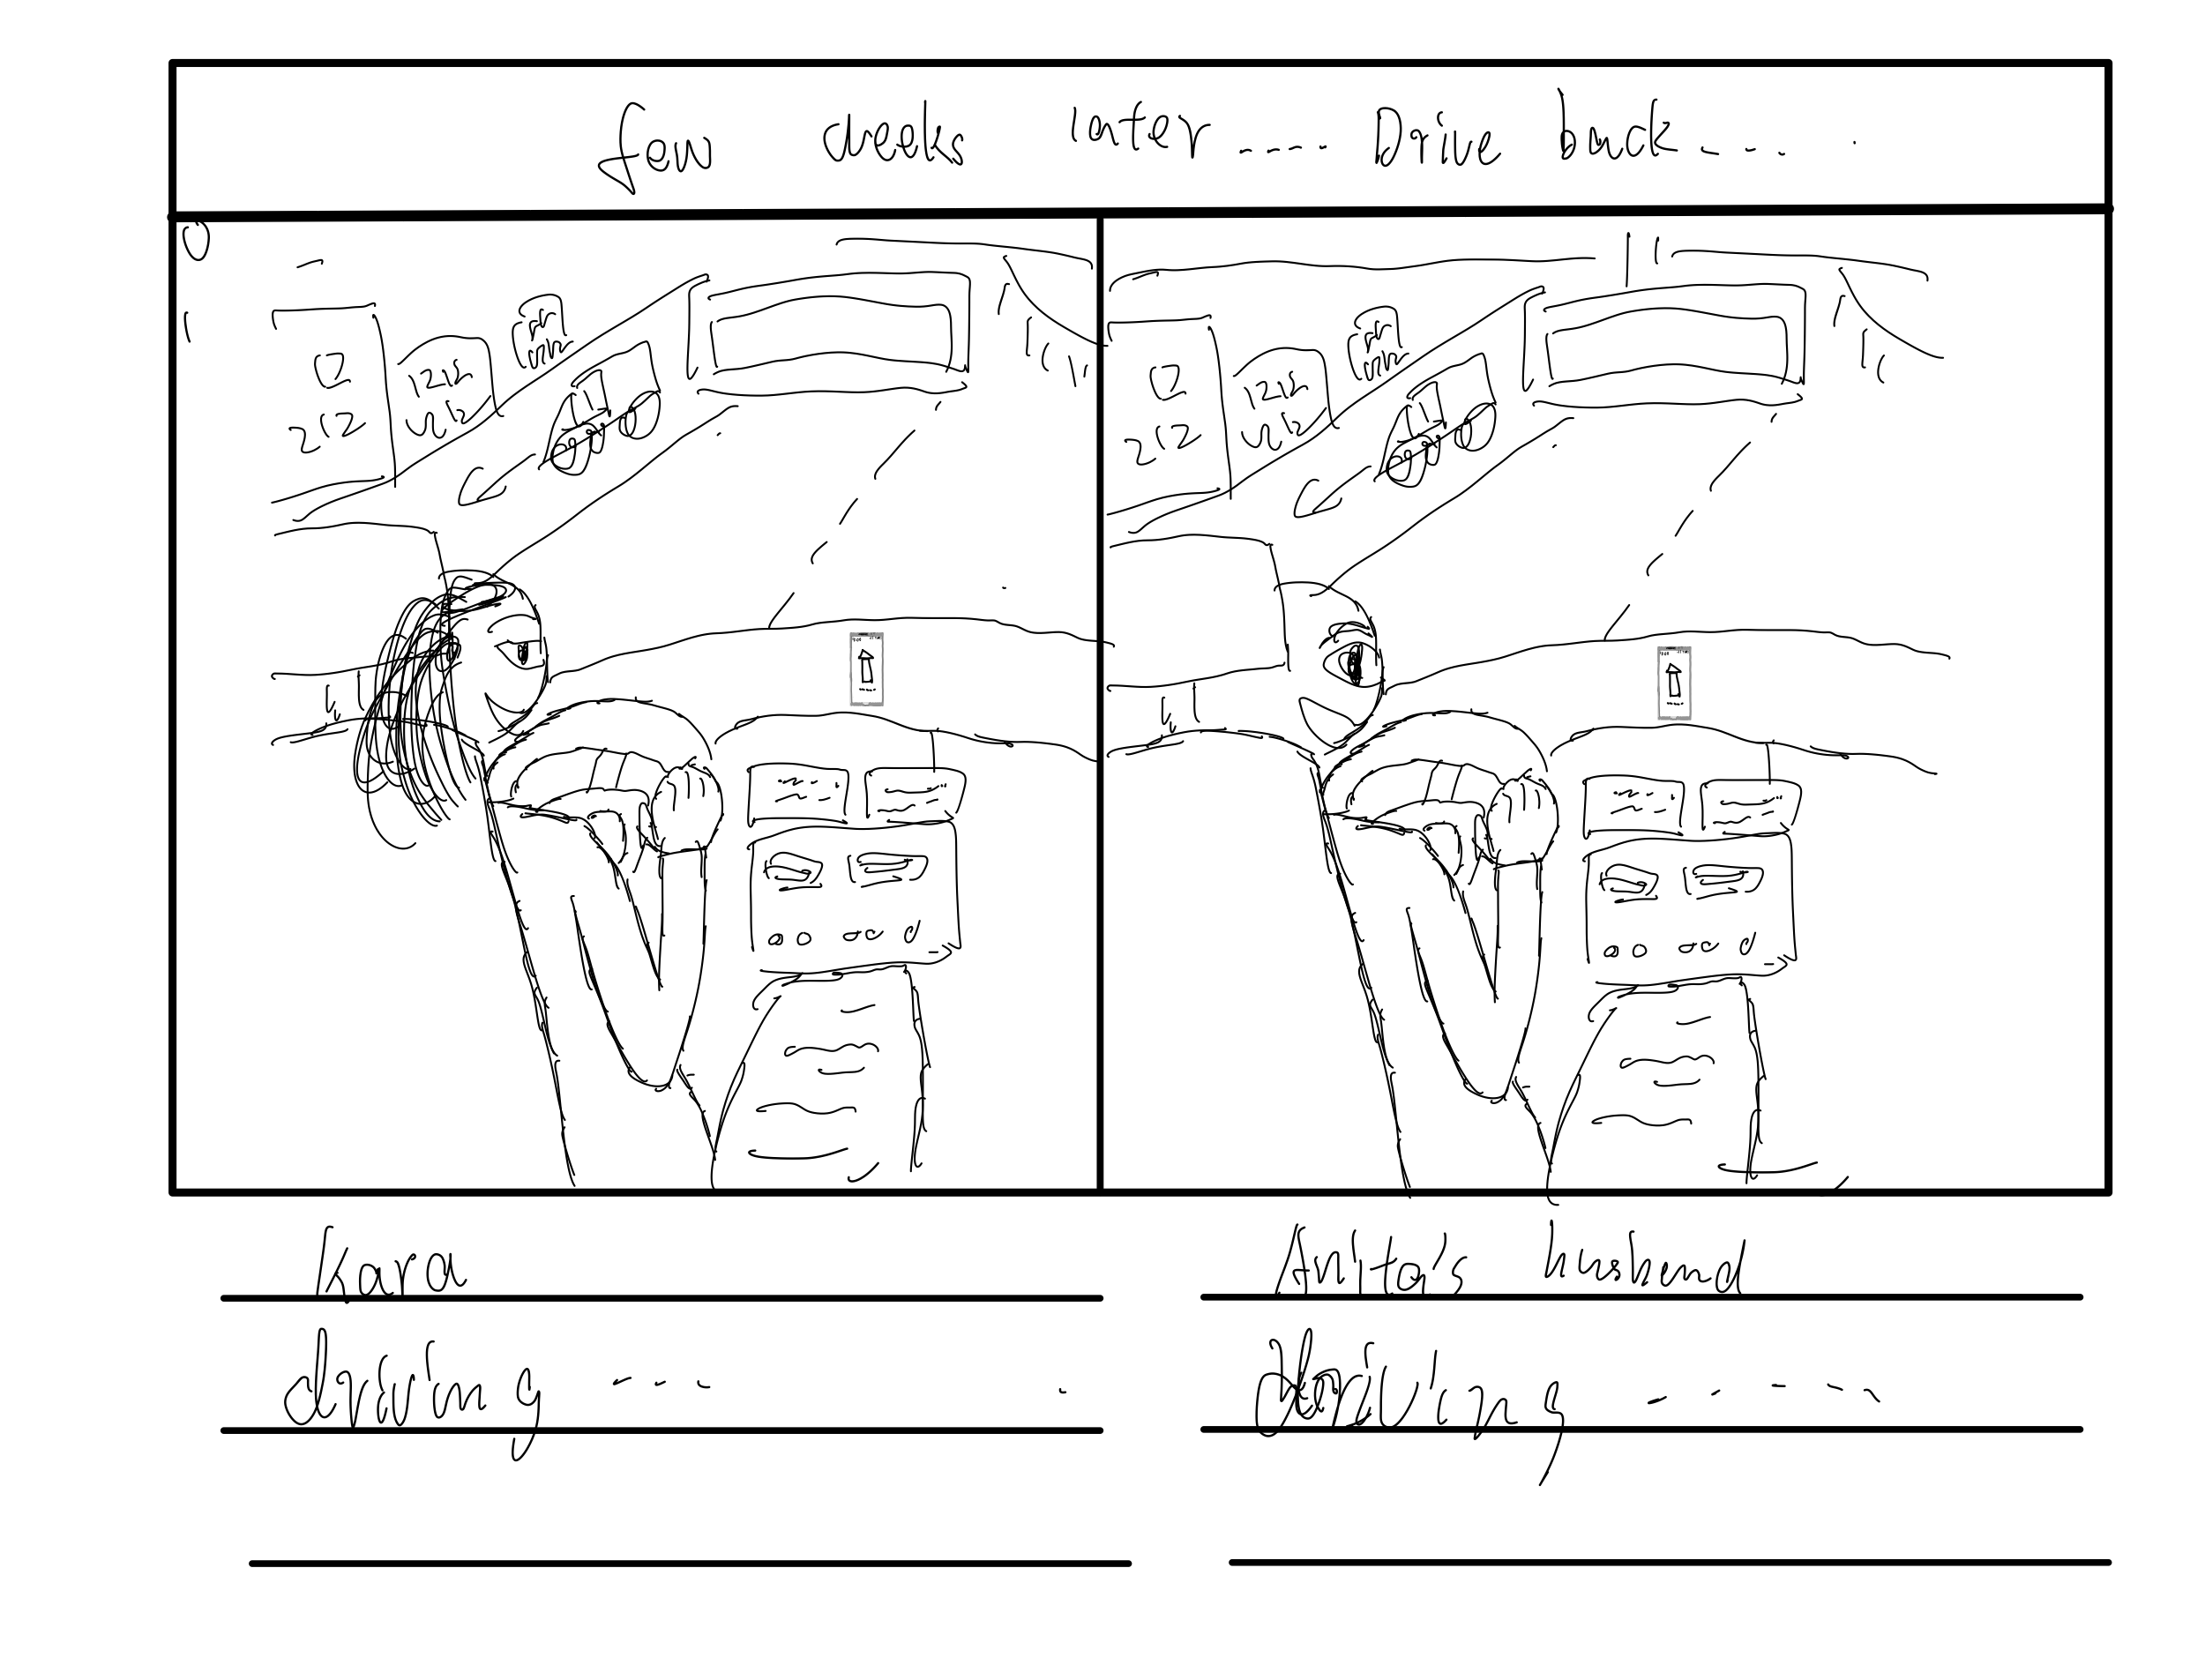 few weeks later.... Drive back....
Kara
driving ...
Anita's husband
driving ....